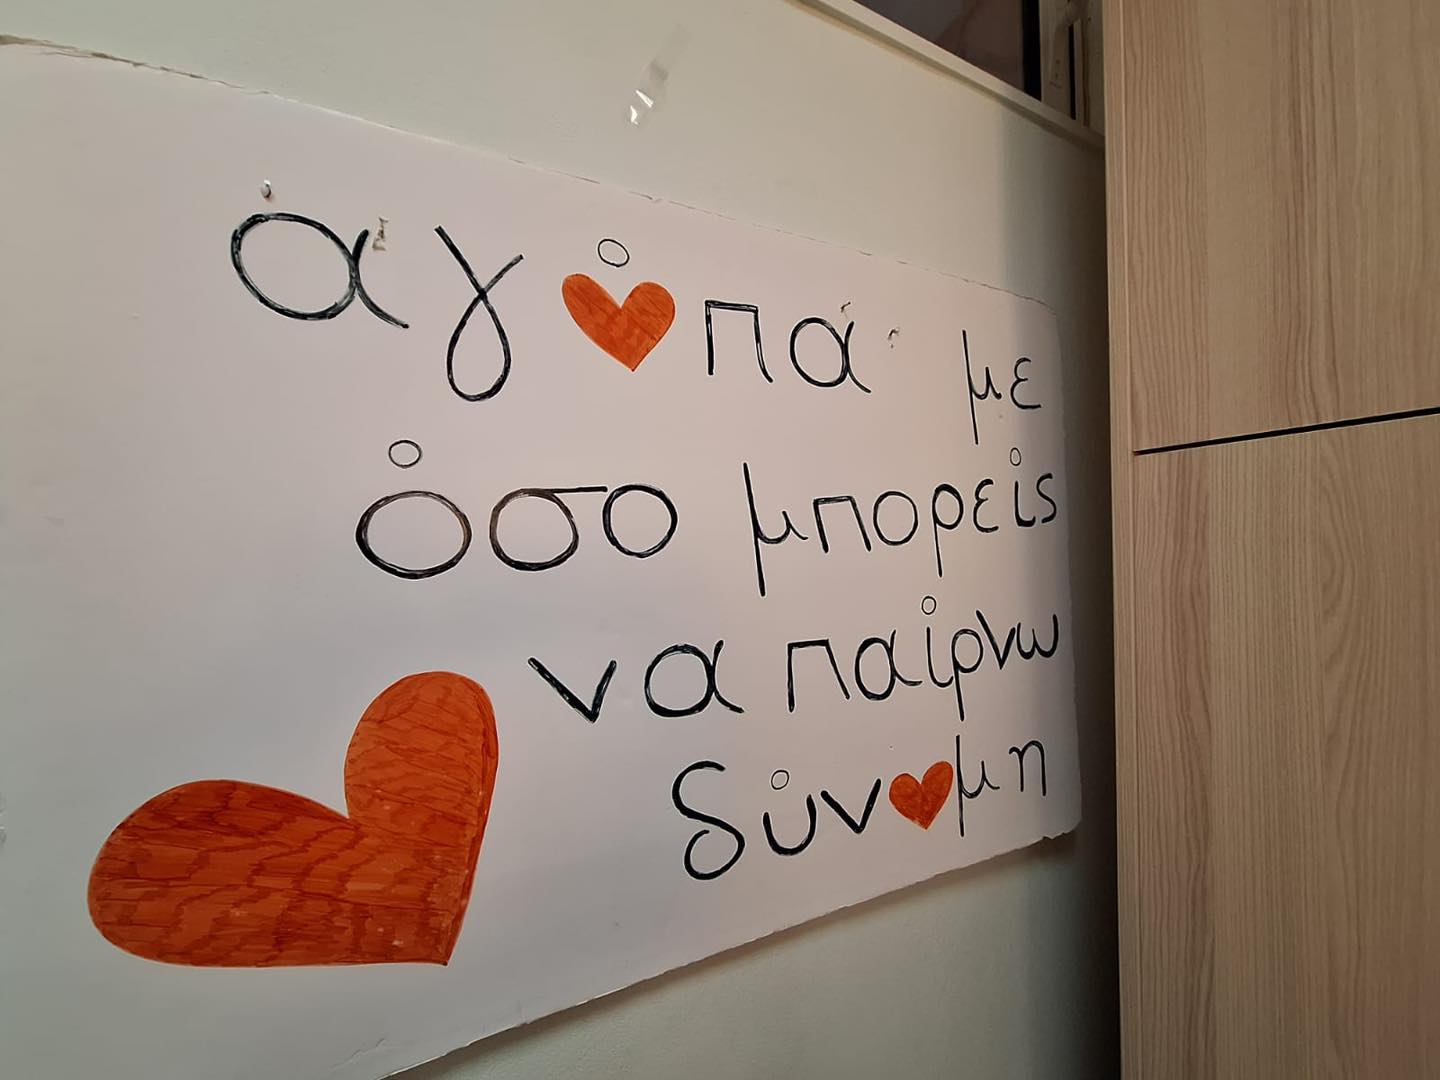 αγάπα με
όσο μπορείς
να παίρνω
δύναμη